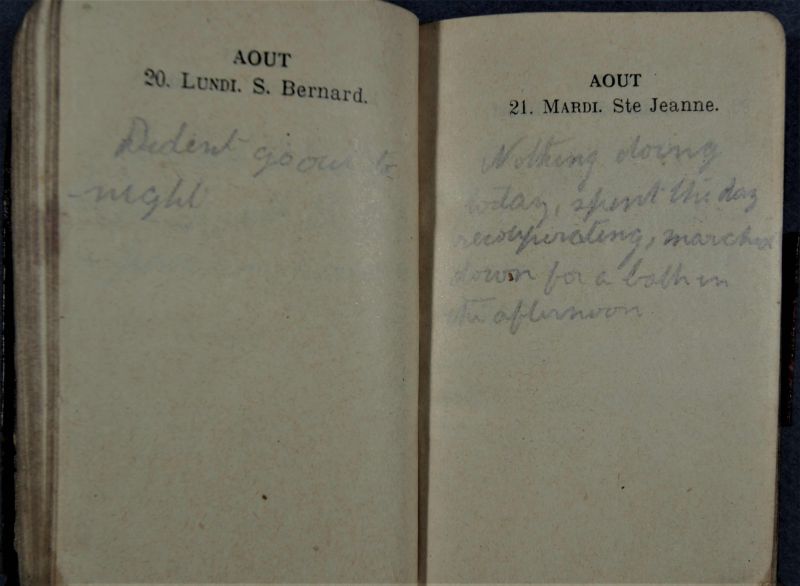 AOUT
20. LUNDI. S. Bernard.
Dident go out to
night
AOUT
21. MARDI. Ste Jeanne.
Nothing doing
today, spent the day
recouperating, marched
down for a bath in
the afternoon